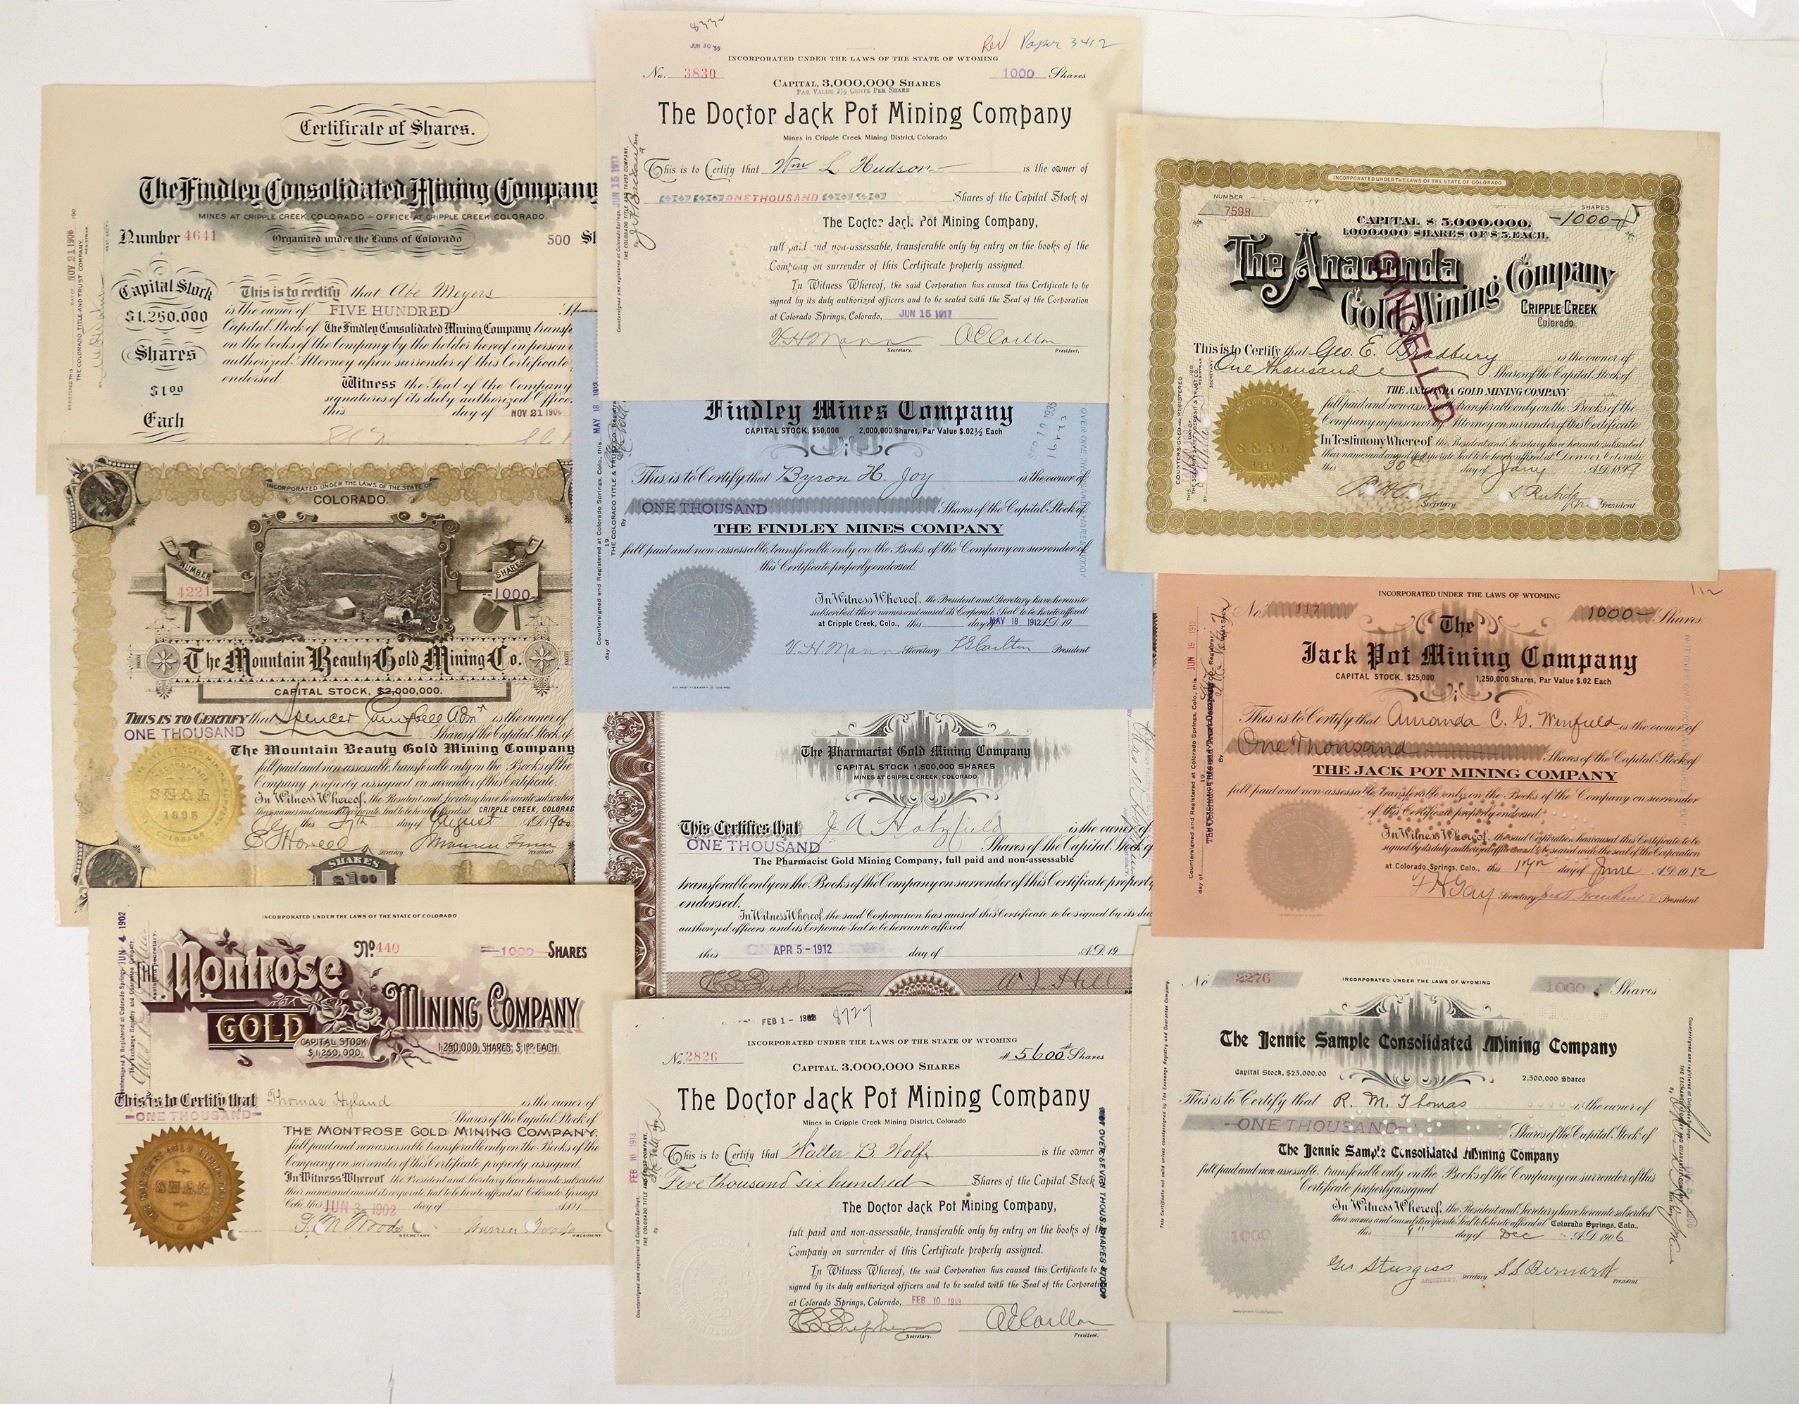 Certificate of Shares.
The Findley Consolidated Mining Company
MINES AT CRIPPLE CREEK, COLORADO – OFFICE AT CRIPPLE CREEK COLORADO
Number 4641
Organized under the Laws of Colorado
500
NOV 21 1906
Capital Stock
$1,250.000
Shares
$1.00
Each
This is to certify that Abe Meyers
is the owner of FIVE HUNDRED
Capital Stock of The Findley Consolidated Mining Company
on the books of the Company by the holder hereof in person
authorized Attorney upon surrender of this Certificate
endorsed.
Witness the Seal of the Company
signatures of its duly authorized Office
this day of NOV 21 1906
8332
JUN 30 35
Rev Paper 3412
INCORPORATED UNDER THE LAWS OF THE STATE OF WYOMING
No. 3830
1000 Shares
CAPITAL, 3,000,000 SHARES
PAR VALUE 2½ CENTS PER SHARE
The Doctor Jack Pot Mining Company
Mines in Cripple Creek Mining District, Colorado
JUN 15 1917
This is to Certify that Wm L Hudson is the owner of
ONE THOUSAND Shares of the Capital Stock of
The Doctor Jack Pot Mining Company,
full paid and non-assessable, transferable only by entry on the books of the
Company on surrender of this Certificate properly assigned.
In Witness Whereof, the said Corporation has caused this Certificate to be
signed by its duly authorized officers and to be sealed with the Seal of the Corporation
at Colorado Springs, Colorado, JUN 15 1917
V H Mann Secretary. A E Carlton President.
INCORPORATED UNDER THE LAWS OF THE STATE OF COLORADO
NUMBER
7598
SHARES
1000
CAPITAL $ 5,000,000,
1,000,000 SHARES OF $5, EACH.
The Anaconda
Gold Mining Company
CRIPPLE CREEK
Colorado.
CANCELLED
This is to Certify that Geo. E. Bradbury is the owner of
One thousand Shares of the Capital Stock of
THE ANACONDA GOLD MINING COMPANY
full paid and non assessable, transferable only on the Books of the
Company in person or by Attorney on surrender of this Certificate
In Testimony Whereof the President and Secretary have hereunto subscribed
their names and caused the Corporate Seal to be hereto affixed at Denver, Colorado
this 30th day of Jany A.D. 1899
SEAL
Secretary President
Findley Mines Company
CAPITAL STOCK, $50,000 2,000,000 Shares, Par Value $.02½ Each
MAY 18 1912
This is to Certify that Byron H. Joy is the owner of
ONE THOUSAND Shares of the Capital Stock of
THE FINDLEY MINES COMPANY
full paid and non-assessable, transferable only on the Books of the Company on surrender of
this Certificate properly endorsed.
In Witness Whereof, the President and Secretary have hereunto
subscribed their names and caused its Corporate Seal to be hereto affixed
at Cripple Creek, Colo., this day of MAY 18 1912 A.D. 19
V. H. Mann Secretary President
INCORPORATED UNDER THE LAWS OF THE STATE OF
COLORADO.
NUMBER
4221
SHARES
1000
The Mountain Beauty Gold Mining Co.
CAPITAL STOCK, $2,000,000.
THIS IS TO CERTIFY that Spencer Campbell Adm is the owner of
ONE THOUSAND Shares of the Capital Stock of
THE MOUNTAIN BEAUTY GOLD MINING COMPANY
full paid and non-assessable, transferable only on the Books of the
Company properly assigned on surrender of this Certificate.
In Witness Whereof, the President and Secretary have hereunto subscribed
their names and caused its corporate Seal to be hereto affixed at CRIPPLE CREEK, COLORADO
this 27th day of August A.D. 1900
SEAL
1895
E G Howell Secretary
SHARES
$1.00
INCORPORATED UNDER LAWS OF WYOMING
No. 117
1000 Shares
The
Jack Pot Mining Company
CAPITAL STOCK, $25,000 1,250,000 Shares, Par Value $.02 Each
JUN 19 1912
This is to Certify that Amanda C. G. Winfield is the owner of
One Thousand Shares of the Capital Stock of
THE JACK POT MINING COMPANY
full paid and non-assessable, transferable only on the Books of the Company on surrender
of this Certificate properly endorsed.
In Witness Whereof, the said Corporation has caused this Certificate to be
signed by its duly authorized officers and to be sealed with the seal of the Corporation
at Colorado Springs, Colo., this day of June A.D. 1912
Secretary President
The Pharmacist Gold Mining Company
CAPITAL STOCK 1,500,000 SHARES
MINES AT CRIPPLE CREEK, COLORADO
This Certifies that is the owner of
ONE THOUSAND Shares of the Capital Stock of
The Pharmacist Gold Mining Company, full paid and non-assessable
transferable only on the Books of the Company on surrender of this Certificate properly
endorsed.
In Witness Whereof the said Corporation has caused this Certificate to be signed by its duly
authorized officers, and its Corporate Seal to be hereto affixed
this APR 5 - 1912 day of A.D. 19
INCORPORATED UNDER THE LAWS OF THE STATE OF COLORADO.
JUN 4 1902
No 440
1000 SHARES
THE Montrose
GOLD MINING COMPANY
CAPITAL STOCK
$1,250,000.
1,250,000, SHARES, $1.00 EACH.
This is to Certify that Thomas Hyland is the owner of
ONE THOUSAND Shares of the Capital Stock of
THE MONTROSE GOLD MINING COMPANY,
full paid and nonassessable transferable only on the Books of the
Company on surrender of this Certificate properly assigned.
In Witness Whereof the President and Secretary have hereunto subscribed
their names and caused its corporate Seal to be hereto affixed at Colorado Springs
Colo. this JUN 3 1902 day of A.D. 1
SEAL
SECRETARY PRESIDENT
FEB 1 - 8727
INCORPORATED UNDER THE LAWS OF THE STATE OF WYOMING
No. 2826
5600 Shares
CAPITAL, 3,000,000 SHARES
The Doctor Jack Pot Mining Company
Mines in Cripple Creek Mining District, Colorado
FEB 10 1913
This is to Certify that Walter B. Wolf is the owner
Five thousand six hundred Shares of the Capital Stock
The Doctor Jack Pot Mining Company,
full paid and non-assessable, transferable only by entry on the books of the
Company on surrender of this Certificate properly assigned.
In Witness Whereof, the said Corporation has caused this Certificate to
signed by its duly authorized officers and to be sealed with the Seal of the Corporation
at Colorado Springs, Colorado, FEB 10 1913
Secretary. A E Carlton President.
No 2276
INCORPORATED UNDER THE LAWS OF WYOMING
1000 Shares
The Jennie Sample Consolidated Mining Company
Capital Stock, $25,000.00 2,500,000 Shares
This is to Certify that R. M. Thomas is the owner of
ONE THOUSAND Shares of the Capital Stock of
The Jennie Sample Consolidated Mining Company
full paid and non-assessable, transferable only on the Books of the Company on surrender of this
Certificate properly assigned
In Witness Whereof, the President and Secretary have hereunto subscribed
their names and caused its Corporate Seal to be hereto affixed at Colorado Springs, Colo.,
this 8" day of Dec A.D. 1906
1000
Geo Sturgiss Secretary S S Bernard President